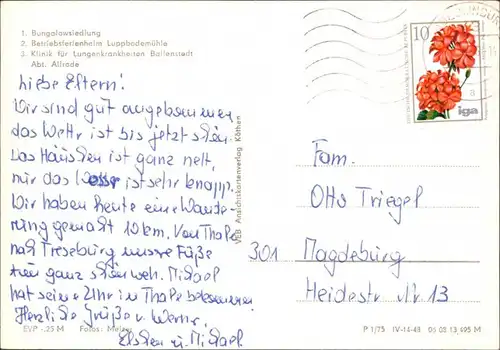 1. Bungalowsiedlung
2. Betriebsferienheim Luppbodemühle
3. Klinik für Lungenkrankheiten Ballenstedt
Abt. Allrode
10
iga
Liebe Eltern!
Wir sind gut angekommen
das Wettr ist bis jetzt schön.
Das Häuschen ist ganz nett,
nur das Wasser ist sehr knapp.
Wir haben heute eine Wande-
rung gemacht 10 km. Von Thale
nach Treseburg unsere Füße
tun ganz schön weh. Michael
hat seine Uhr in Thale bekommen
Herzliche Grüße v. Werner,
u. Michael
VEB Ansichtskartenverlag Köthen
Fam.
Otto Triegel
301 Magdeburg
Heidestr. Nr 13
EVP -.25 M Fotos:
P 1/75 IV-14-48 06 08 13 495 M